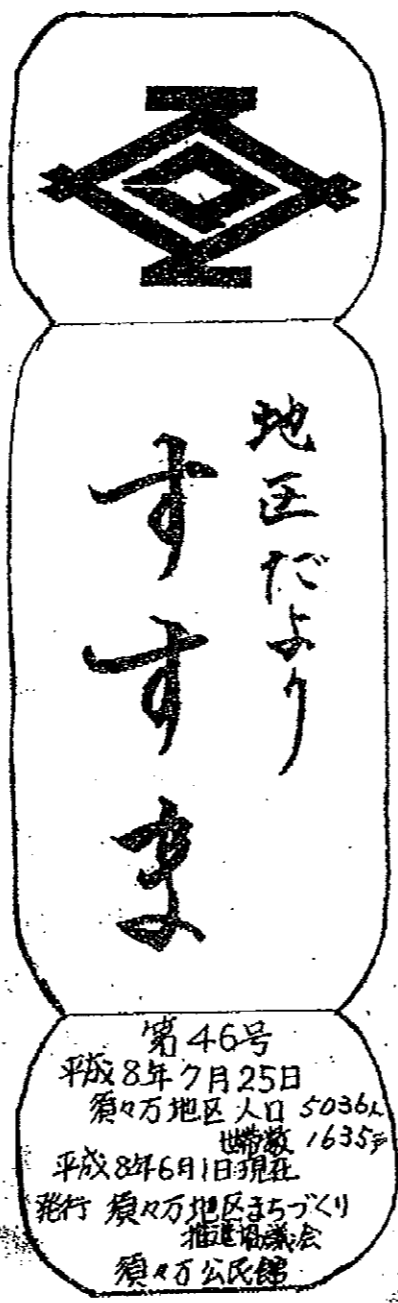 地区だより
すすま
第46号
平成8年7月25日
須々万地区 人口 5036人
世帯数 1635戸
平成8年6月1日現在
発行 須々万地区まちづくり
推進協議会
須々万公民館